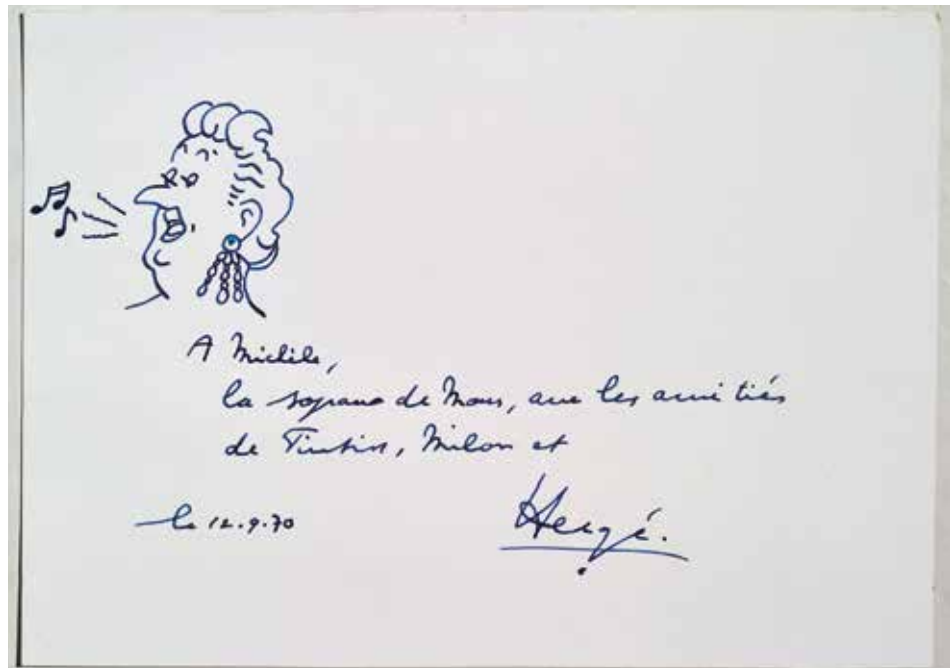 A Michèle,
la soprano de Mons, avec les amitiés
de Tintin, Milou et
Hergé.
le 12.9.70